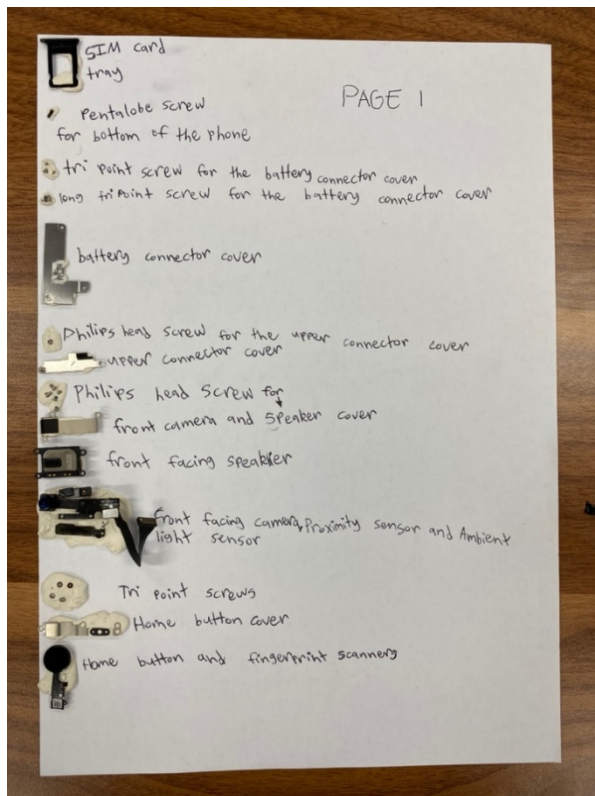 SIM card
tray
PAGE 1
Pentalobe screw
for bottom of the phone
tri point screw for the battery connector cover
long tri point screw for the battery connector cover
battery connector cover
Philips head screw for the upper connector cover
upper connector cover
Philips head screw for
front camera and speaker cover
front facing speaker
front facing camera, Proximity sensor and Ambient
light sensor
Tri point screws
Home button cover
Home button and fingerprint scanners